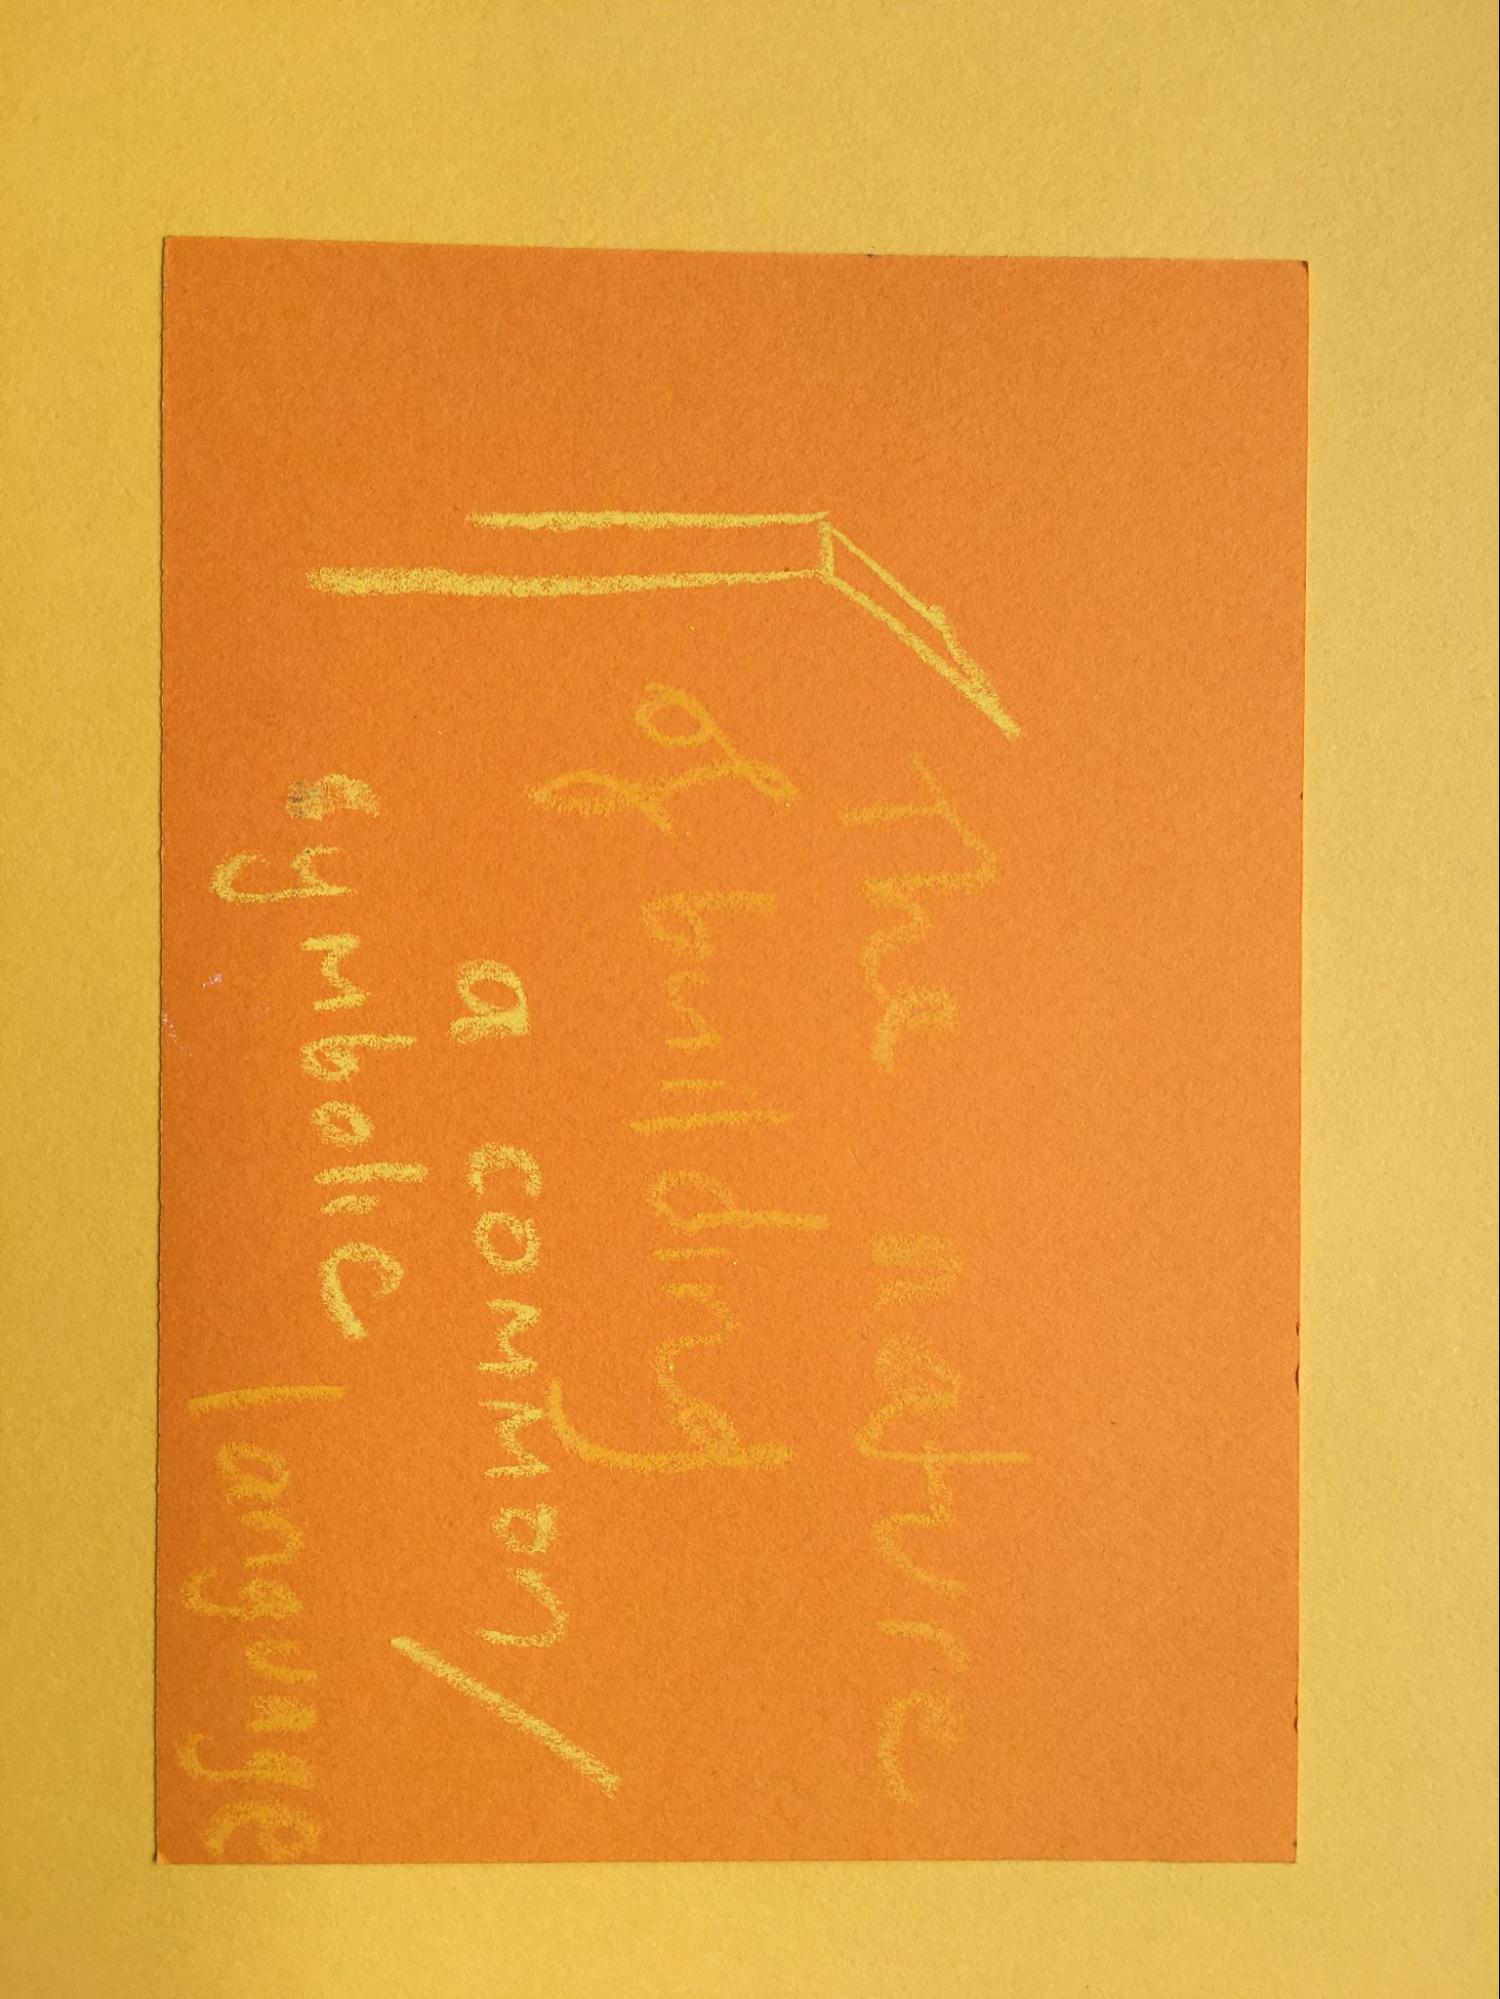 The nature
of building
a common/
symbolic
language